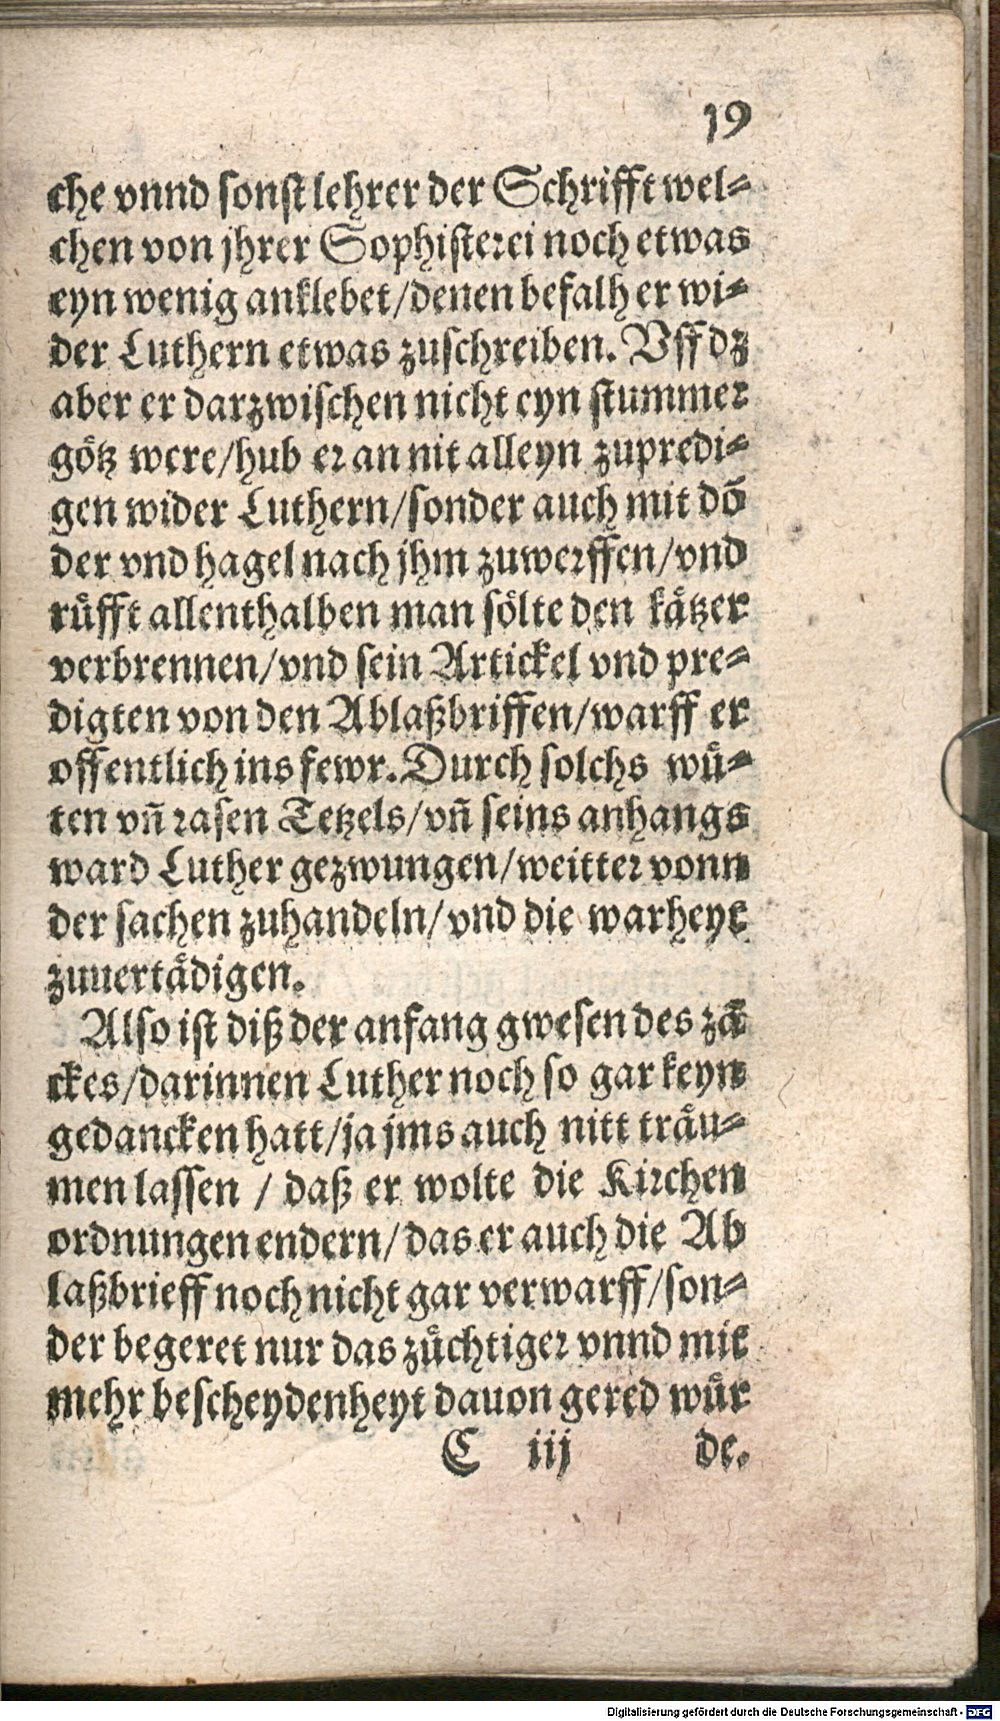 19
che vnnd sonst lehrer der Schrifft wel⸗
chen von jhrer Sophisterei noch etwas
eyn wenig anklebet/denen befalh er wi⸗
der Luthern etwas zuschreiben. Vff dz
aber er darzwischen nicht eyn stummer
götz were/hub er an nit alleyn zupredi⸗
gen wider Luthern/sonder auch mit dõ
der vnd hagel nach jhm zuwerffen/vnd
růfft allenthalben man sölte den kätzer
verbrennen/vnd sein Artickel vnd pre⸗
digten von den Ablaßbriffen/warff er
offentlich ins fewr. Durch solchs wü⸗
ten vñ rasen Tetzels/vñ seins anhangs
ward Luther gezwungen/weitter vonn
der sachen zuhandeln/vnd die warheyt
zuuertädigen.
Also ist diß der anfang gwesen des zã
ckes/darinnen Luther noch so gar keyn
gedancken hatt/ja jms auch nitt träu⸗
men lassen / daß er wolte die Kirchen
ordnungen endern/das er auch die Ab
laßbrieff noch nicht gar verwarff/son⸗
der begeret nur das züchtiger vnnd mit
mehr bescheydenheyt dauon gered wür
C iij de.
Digitalisierung gefördert durch die Deutsche Forschungsgemeinschaft - DFG